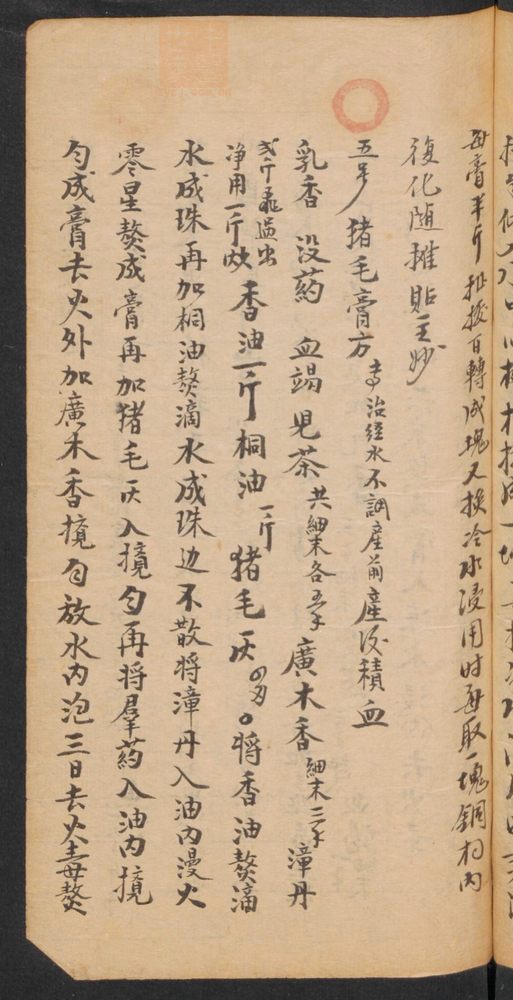 每膏半斤扯拔百轉成塊又換冷水浸用时每取一塊銅杓內
復化随摊貼至妙
猪毛膏方 专治经水不調產前產後積血
乳香 没药 血竭 児茶 共細末各 廣木香 細末三 漳丹
净用一斤炒 香油一斤 桐油一斤 猪毛灰 将香油熬滴
水成珠再加桐油熬滴水成珠边不散将漳丹入油内漫火
零星熬成膏再加猪毛灰入搅匀再将羣药入油内搅
匀成膏去火外加廣木香搅匀放水内泡三日去火毒熬